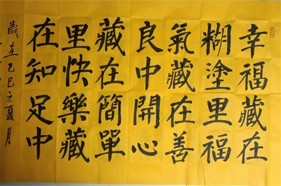 幸福藏在
糊塗里福
氣藏在善
良中開心
藏在簡單
里快樂藏
在知足中
歲在乙巳之夏月